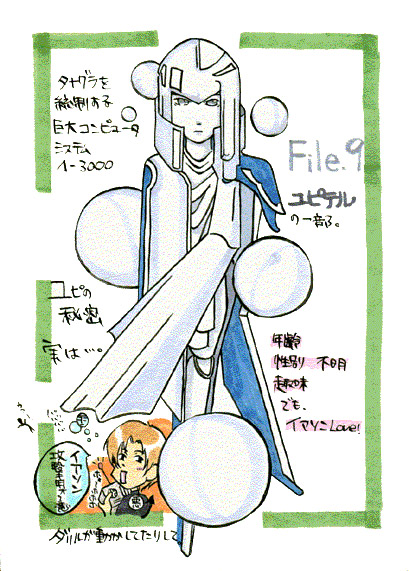 タナグラを
統制する
巨大コンピュータ
システム
Λ-3000
File.9
ユピテル
の一部。
ユピの
秘密
実は…。
年齢
性別 不明
趣味
でも、
イアソンLove!
イアソン
ダリルが動かしてたりして